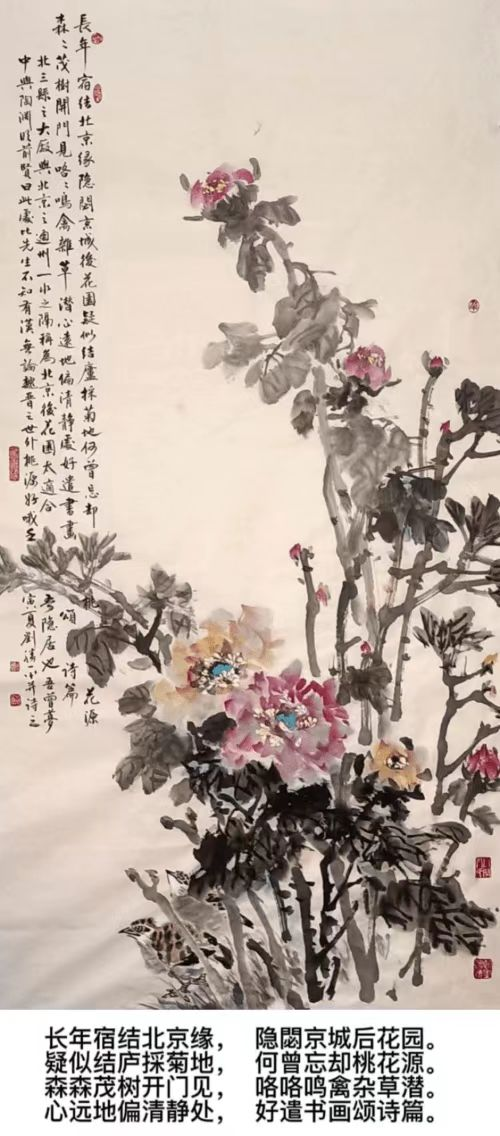 長年宿结北京缘隐閟京城後花園疑似结廬採菊地何曾忘却桃花源
森々茂樹開門見咯々鳴禽雜草潜心遠地偏清静處好遣書畫頌诗篇
北三縣之大廠與北京之通州一水之隔稱為北京後花園太適合吾隐居也吾曾夢
中與陶渊明前賢曰此處比先生不知有漢無論魏晋之世外桃源好哦壬寅夏劉并诗之
长年宿结北京缘， 隐閟京城后花园。
疑似结庐採菊地， 何曾忘却桃花源。
森森茂树开门见， 咯咯鸣禽杂草潜。
心远地偏清静处， 好遣书画颂诗篇。